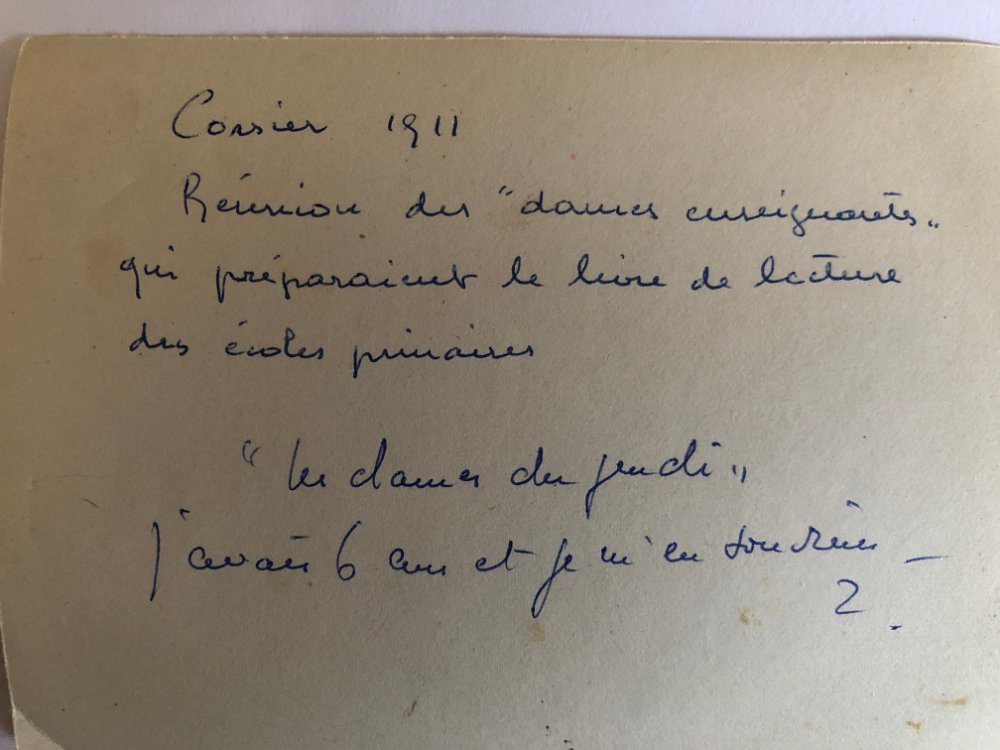 Corsier 1911
Réunion des "dames enseignantes"
qui préparaient le livre de lecture
des écoles primaires
"les dames du jeudi"
j'avais 6 ans et je m'en souviens –
2.